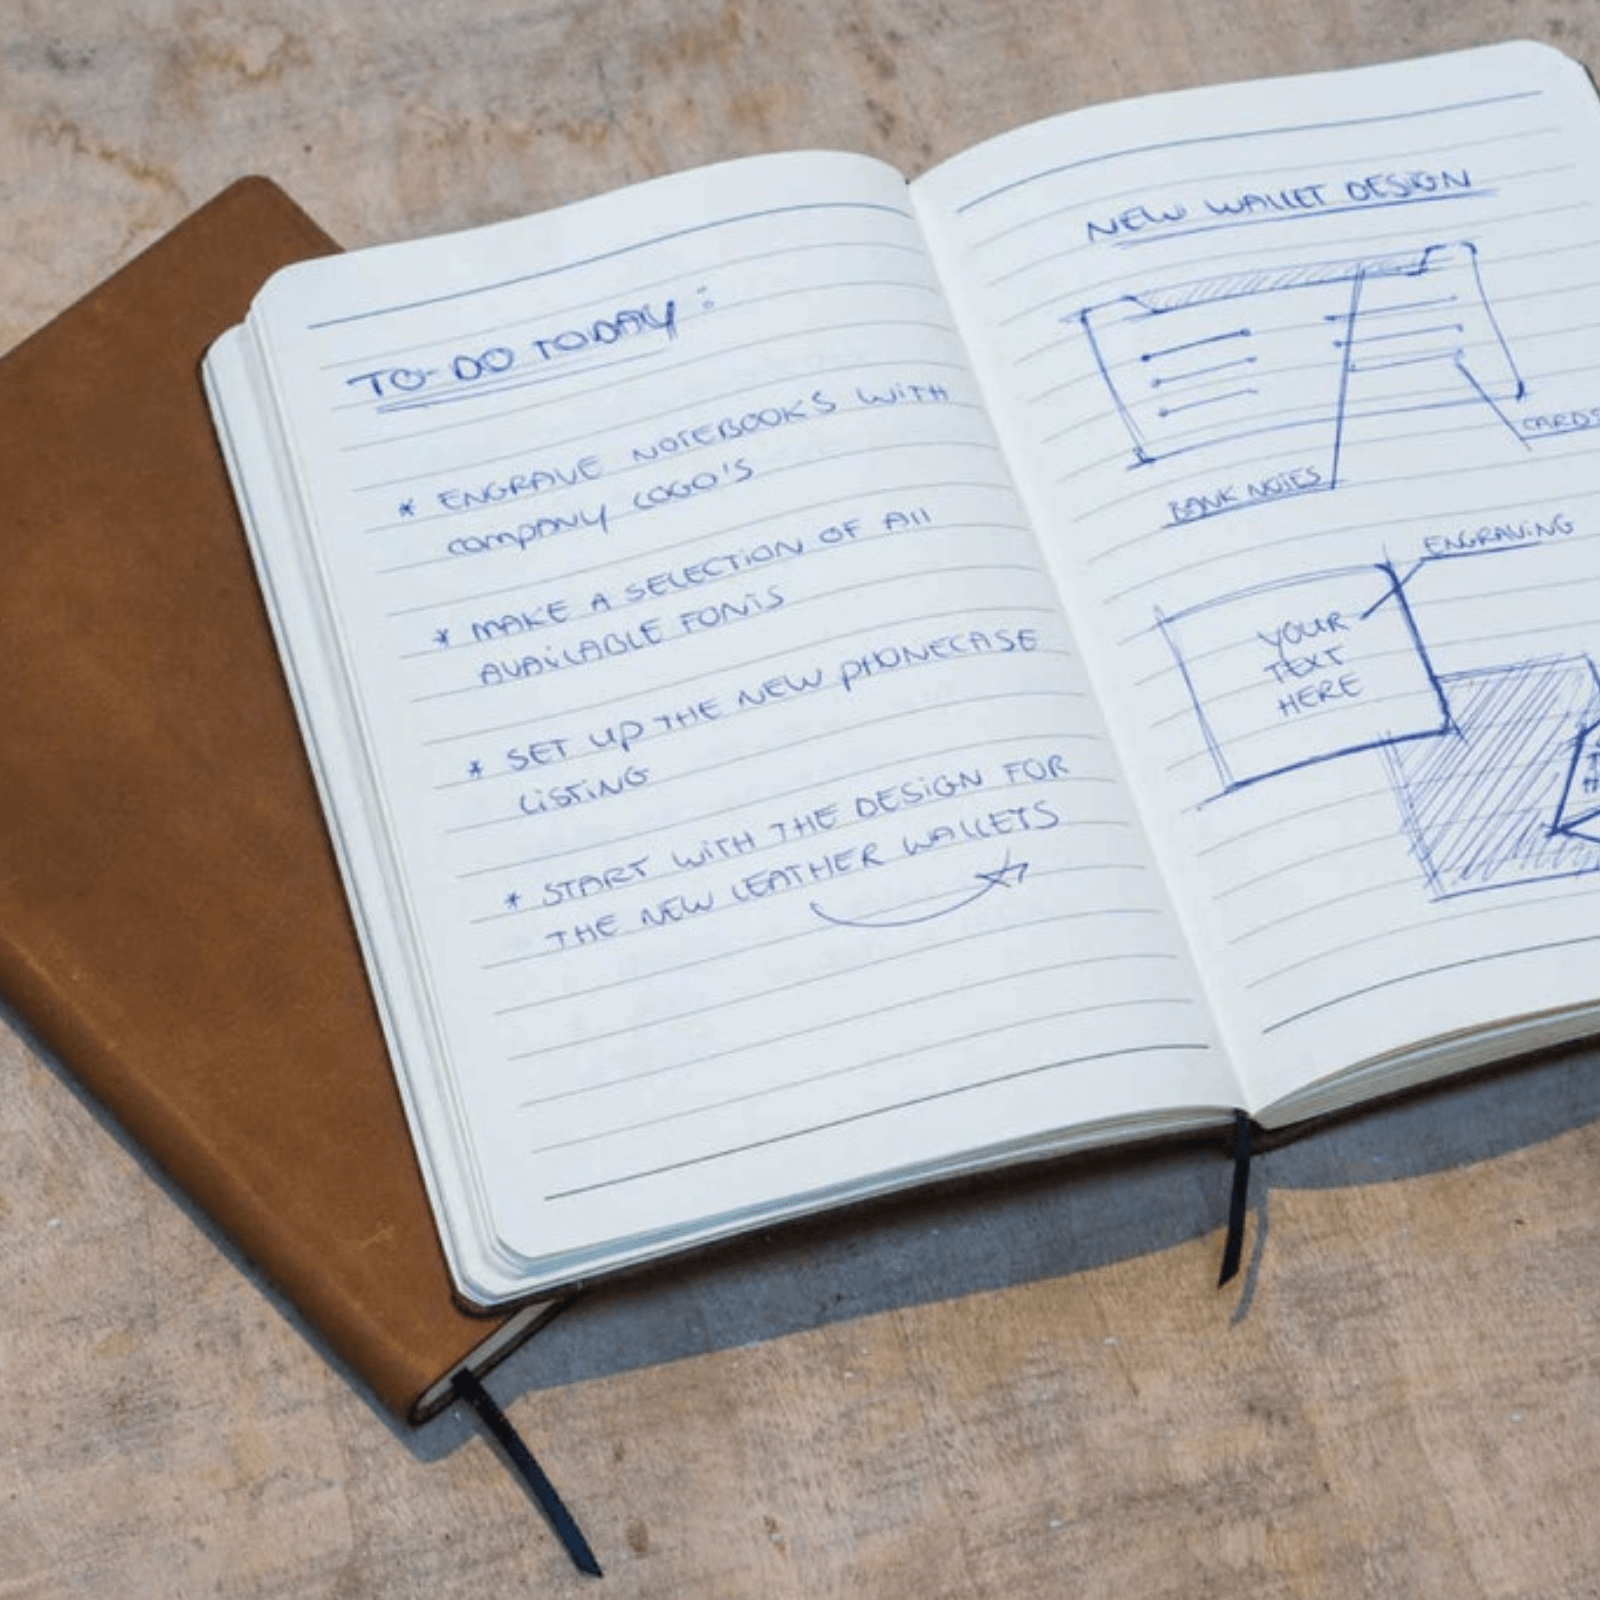 TO-DO TODAY:
* ENGRAVE NOTEBOOKS WITH
COMPANY LOGO'S
* MAKE A SELECTION OF All
AVAiLABLE FONTS
* SET UP THE NEW PHONECASE
LiSTiNG
* START WiTH THE DESiGN FOR
THE NEW LEATHER WALLETS
NEW WALLET DESIGN
CARDS
BANK NOTES
ENGRAViNG
YOUR
TEXT
HERE